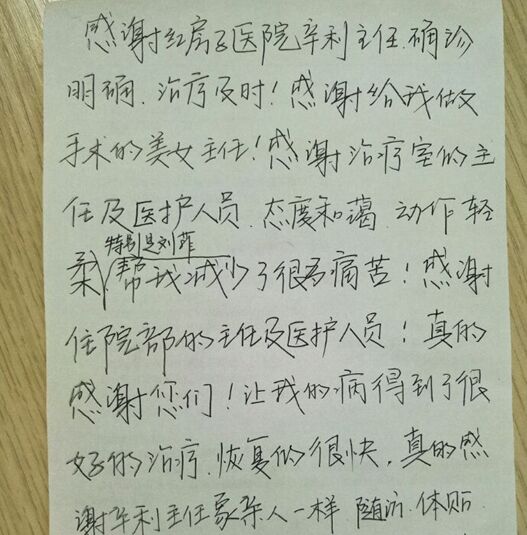 感谢红房子医院辛利主任.确诊
明确、治疗及时！感谢给我做
手术的美女主任！感谢治疗室的主
任及医护人员、态度和蔼、动作轻
特别是刘萍
柔，帮我减少了很多痛苦！感谢
住院部的主任及医护人员！真的
感谢您们！让我的病得到了很
好的治疗、恢复的很快，真的感
谢辛利主任象亲人一样、随访、体贴